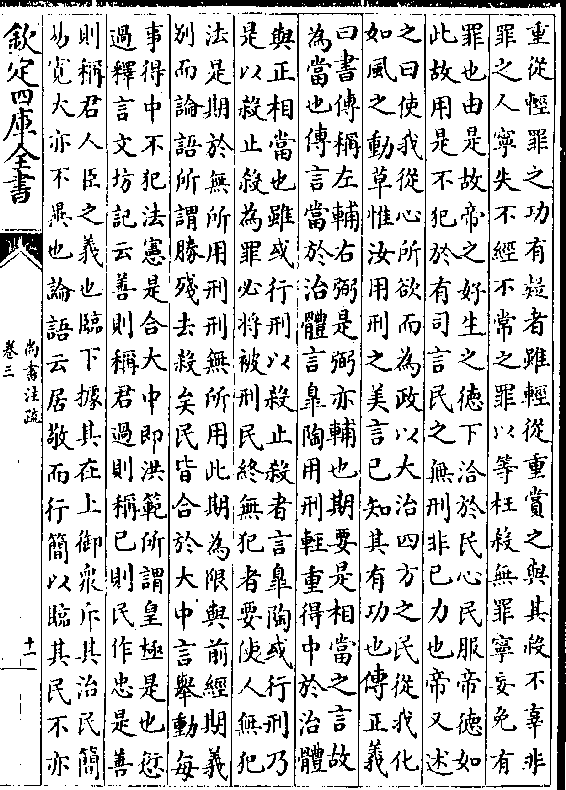 重從輕罪之功有疑者雖輕從重賞之與其殺不辜非
罪之人寧失不經不常之罪以等枉殺無罪寧妄免有
罪也由是故帝之好生之德下洽於民心民服帝德如
此故用是不犯於有司言民之無刑非已力也帝又述
之曰使我從心所欲而為政以大治四方之民從我化
如風之動草惟汝用刑之美言已知其有功也傳正義
曰書傳稱左輔右弼是弼亦輔也期要是相當之言故
為當也傳言當於治體言臯陶用刑輕重得中於治體
與正相當也雖或行刑以殺止殺者言臯陶或行刑乃
是以殺止殺為罪必將被刑民終無犯者要使人無犯
法是期於無所用刑刑無所用此期為限與前經期義
别而論語所謂勝殘去殺矣民皆合於大中言舉動每
事得中不犯法憲是合大中即洪範所謂皇極是也愆
過釋言文坊記云善則稱君過則稱已則民作忠是善
則稱君人臣之義也臨下據其在上御衆斥其治民簡
易寛大亦不異也論語云居敬而行簡以臨其民不亦
欽定四庫全書
尚書注疏
卷三
十一